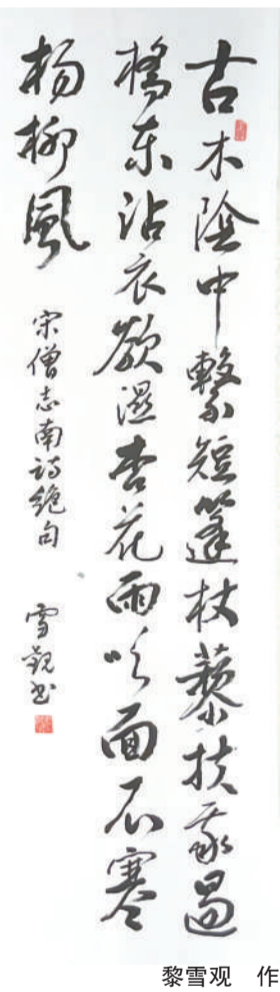 古木陰中繫短篷杖藜扶我過
橋東沾衣欲濕杏花雨吹面不寒
楊柳風
宋僧志南詩絕句
雪觀书
黎雪观 作